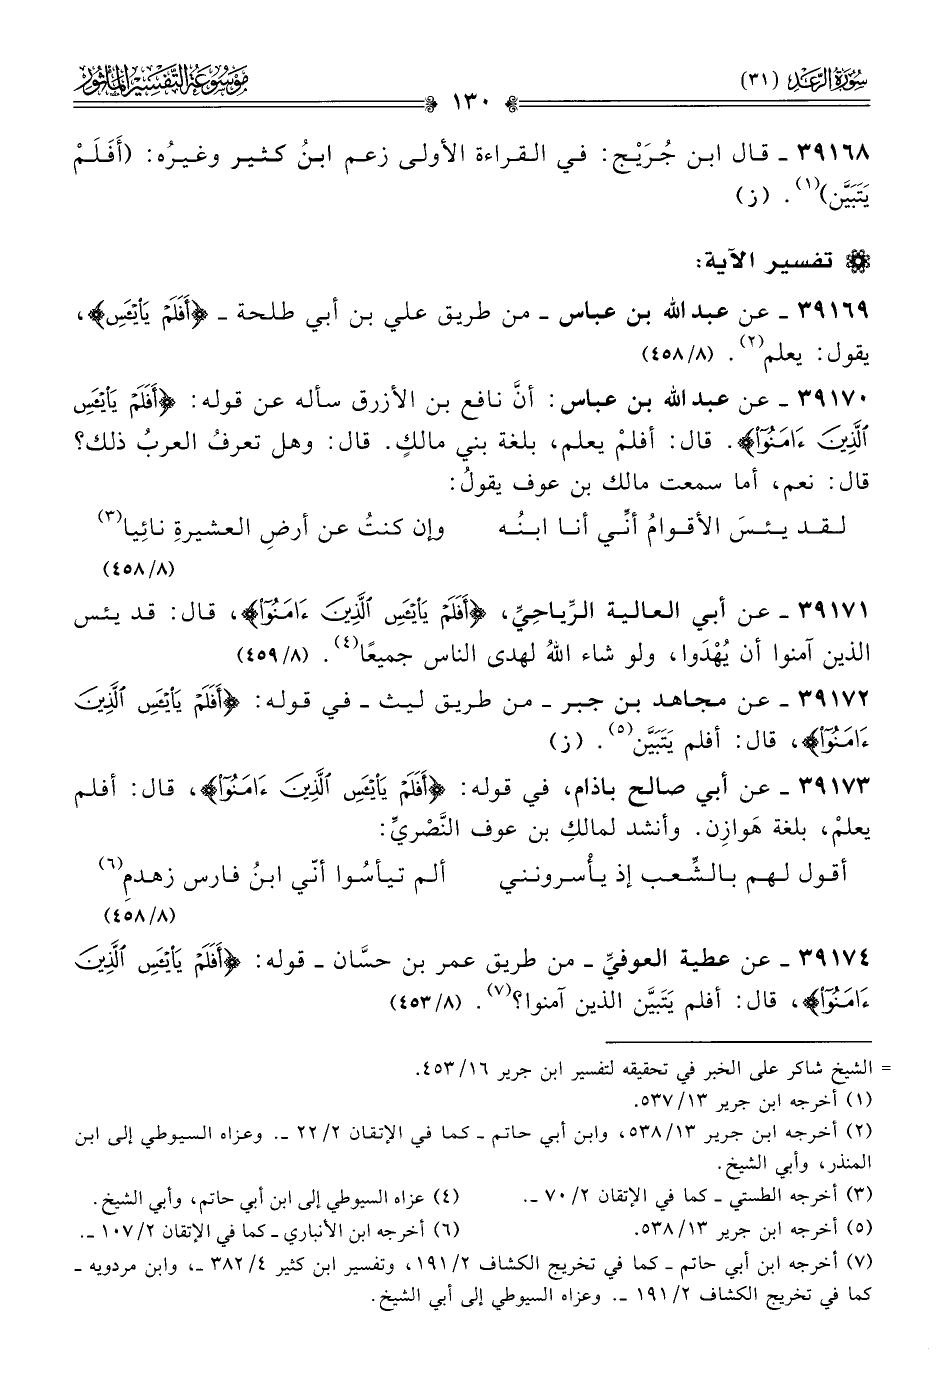 سُورَةُ الرَّعْد (٣١)
١٣٠
مَوْسُوعَةُ التَّفْسِيرِ المَأْثُورِ
٣٩١٦٨ ـ قال ابن جُرَيْج: في القراءة الأولى زعم ابنُ كثير وغيرُه: (أَفَلَمْ
يَتَبَيَّن)(١). (ز)
تفسير الآية:
٣٩١٦٩ ـ عن عبد الله بن عباس ـ من طريق علي بن أبي طلحة ـ ﴿أَفَلَمْ يَأْيْـَٔسِ﴾،
يقول: يعلم(٢). (٤٥٨/٨)
٣٩١٧٠ ـ عن عبد الله بن عباس: أنَّ نافع بن الأزرق سأله عن قوله: ﴿أَفَلَمْ يَأْيْـَٔسِ
ٱلَّذِينَ ءَامَنُوٓا۟﴾. قال: أفلمْ يعلم، بلغة بني مالكٍ. قال: وهل تعرفُ العربُ ذلك؟
قال: نعم، أما سمعت مالك بن عوف يقولُ:
لقد يئسَ الأقوامُ أنِّي أنا ابنُه وإن كنتُ عن أرضِ العشيرةِ نائِيا(٣)
(٤٥٨/٨)
٣٩١٧١ ـ عن أبي العالية الرِّياحِيِّ، ﴿أَفَلَمْ يَأْيْـَٔسِ ٱلَّذِينَ ءَامَنُوٓا۟﴾، قال: قد يئس
الذين آمنوا أن يُهْدَوا، ولو شاء اللهُ لهدى الناس جميعًا(٤). (٤٥٩/٨)
٣٩١٧٢ ـ عن مجاهد بن جبر ـ من طريق ليث ـ في قوله: ﴿أَفَلَمْ يَأْيْـَٔسِ ٱلَّذِينَ
ءَامَنُوٓا۟﴾، قال: أفلم يَتَبَيَّن(٥). (ز)
٣٩١٧٣ ـ عن أبي صالح باذام، في قوله: ﴿أَفَلَمْ يَأْيْـَٔسِ ٱلَّذِينَ ءَامَنُوٓا۟﴾، قال: أفلم
يعلمْ، بلغة هَوازِن. وأنشد لمالكِ بن عوف النَّصْريِّ:
أقول لهم بالشِّعب إذ يأْسرونني ألم تيأسُوا أنّي ابنُ فارس زهدمِ(٦)
(٤٥٨/٨)
٣٩١٧٤ ـ عن عطية العوفيِّ ـ من طريق عمر بن حسَّان ـ قوله: ﴿أَفَلَمْ يَأْيْـَٔسِ ٱلَّذِينَ
ءَامَنُوٓا۟﴾، قال: أفلم يَتَبَيَّن الذين آمنوا؟(٧). (٤٥٣/٨)
= الشيخ شاكر على الخبر في تحقيقه لتفسير ابن جرير ٤٥٣/١٦.
(١) أخرجه ابن جرير ٥٣٧/١٣.
(٢) أخرجه ابن جرير ٥٣٨/١٣، وابن أبي حاتم ـ كما في الإتقان ٢٢/٢ ـ. وعزاه السيوطي إلى ابن
المنذر، وأبي الشيخ.
(٣) أخرجه الطستي ـ كما في الإتقان ٧٠/٢ ـ. (٤) عزاه السيوطي إلى ابن أبي حاتم، وأبي الشيخ.
(٥) أخرجه ابن جرير ٥٣٨/١٣. (٦) أخرجه ابن الأنباري ـ كما في الإتقان ١٠٧/٢ ـ.
(٧) أخرجه ابن أبي حاتم ـ كما في تخريج الكشاف ١٩١/٢، وتفسير ابن كثير ٣٨٢/٤ ـ، وابن مردويه ـ
كما في تخريج الكشاف ١٩١/٢ ـ. وعزاه السيوطي إلى أبي الشيخ.